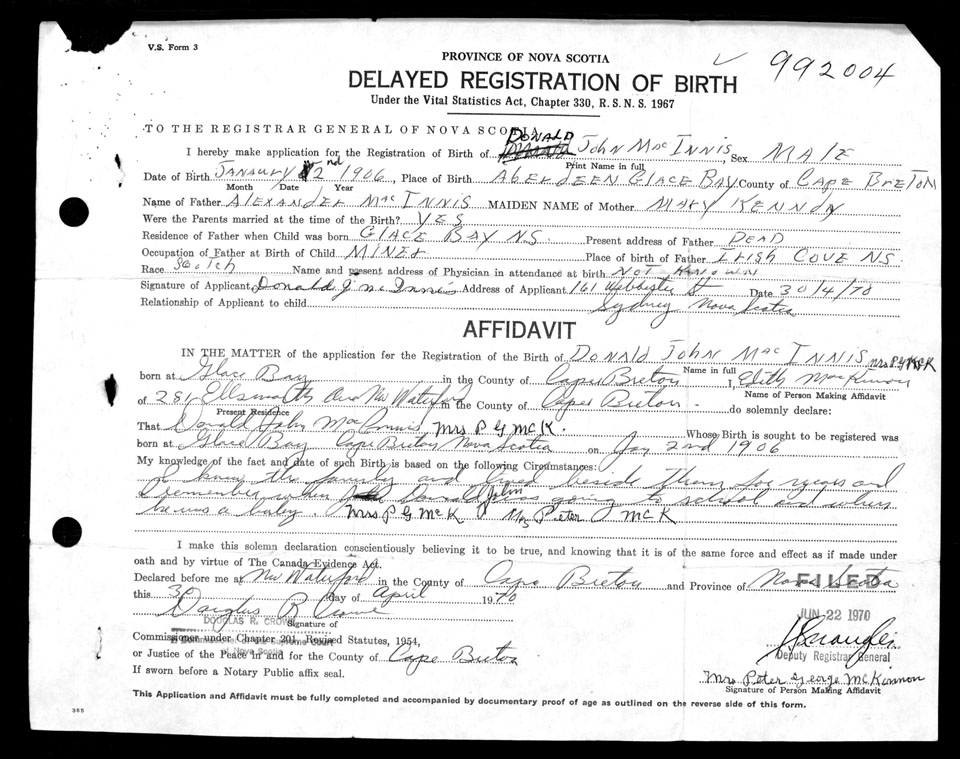 V.S. Form 3
PROVINCE OF NOVA SCOTIA
992004
DELAYED REGISTRATION OF BIRTH
Under the Vital Statistics Act, Chapter 330, R.S.N.S. 1967
TO THE REGISTRAR GENERAL OF NOVA SCOTIA
I hereby make application for the Registration of Birth of DONALD JOHN MAC INNIS, Sex MALE
Print Name in full
Date of Birth JANAURY 2nd 1906, Place of Birth ABERDEEN GLACE BAY County of CAPE BRETON
Month Date Year
Name of Father ALEXANDER MAC INNIS MAIDEN NAME of Mother MARY KENNON
Were the Parents married at the time of the Birth? YES
Residence of Father when Child was born GLACE BAY NS. Present address of Father DEAD
Occupation of Father at Birth of Child MINER Place of birth of Father IRISH COVE NS.
Race Scotch Name and present address of Physician in attendance at birth NOT KNOWN
Signature of Applicant Donald J Mc Innis Address of Applicant 161 Webbester St Date 30/4/70
Relationship of Applicant to child Sydney Nova Scotia
AFFIDAVIT
IN THE MATTER of the application for the Registration of the Birth of DONALD JOHN MAC INNIS Mrs P G McK
Name in full
born at Glace Bay in the County of Cape Breton I, Edith MacKinnon
Name of Person Making Affidavit
of 281 Ellsworth Ave New Waterford in the County of Cape Breton do solemnly declare:
Present Residence
That Donald John MacInnis Mrs P G McK. Whose Birth is sought to be registered was
born at Glace Bay Cape Breton Nova Scotia on Jan 2nd 1906
My knowledge of the fact and date of such Birth is based on the following Circumstances:
I knew the family and lived beside them for years and
I remember when Donald John was going to school and when
he was a baby. Mrs P G McK Mrs Peter J McK
I make this solemn declaration conscientiously believing it to be true, and knowing that it is of the same force and effect as if made under
oath and by virtue of The Canada Evidence Act.
Declared before me at New Waterford in the County of Cape Breton and Province of Nova Scotia
FILED
this 30 day of April 1970
JUN 22 1970
Douglas R Crowe
DOUGLAS R. CROWE
Signature of
Commissioner under Chapter 201, Revised Statutes, 1954,
A Commissioner of the Supreme Court
of Nova Scotia
or Justice of the Peace in and for the County of Cape Breton
Deputy Registrar General
If sworn before a Notary Public affix seal.
Mrs Peter George McKinnon
Signature of Person Making Affidavit
This Application and Affidavit must be fully completed and accompanied by documentary proof of age as outlined on the reverse side of this form.
365